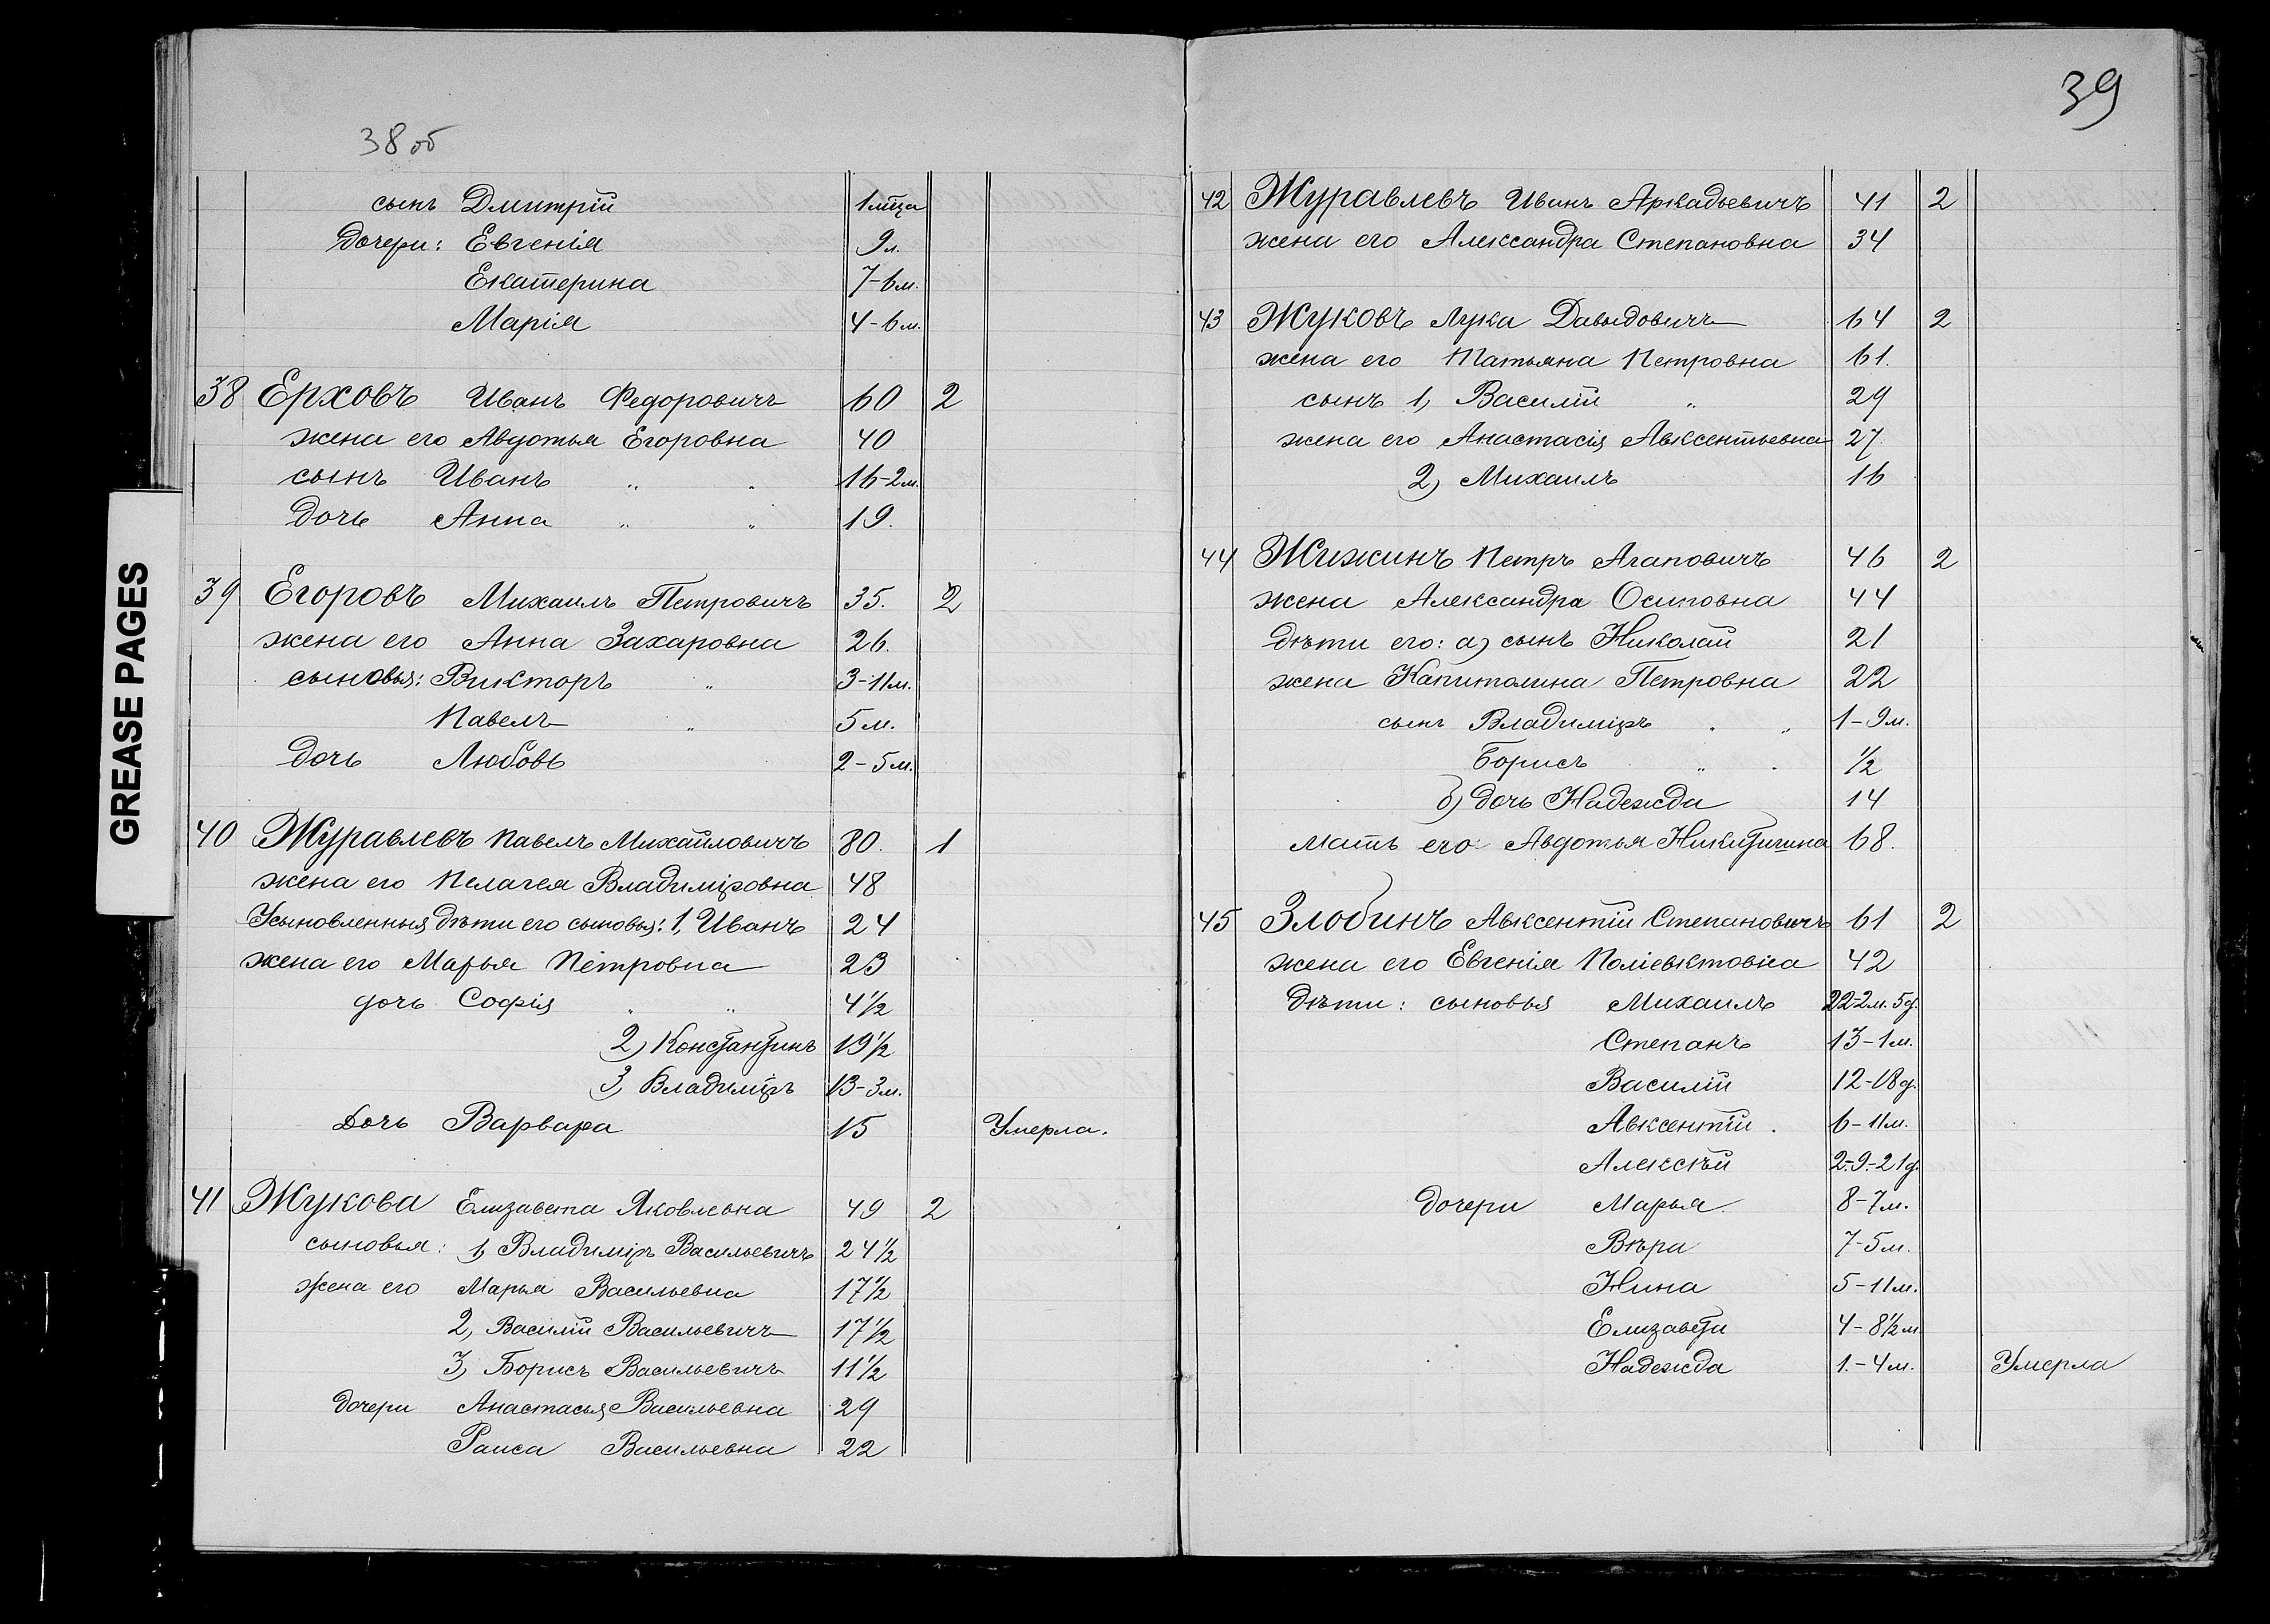 38 об
сынъ Дмитрій 1 мѣца
дочери: Евгенія 9 л.
Екатерина 7-6 м.
Марія 4-6 м.
38 Ерховъ Иванъ Федоровичъ 60 2
жена его Авдотья Егоровна 40
сынъ Иванъ " " 16-2 м.
дочь Анна " " 19.
39 Егоровъ Михаилъ Петровичъ 35. 2
жена его Анна Захаровна 26.
сыновья: Викторъ " 3-11 м.
Павелъ " 5 м.
дочь Любовь 2-5 м.
40 Журавлевъ Павелъ Михайловичъ 80. 1
жена его Пелагея Владиміровна 48
Усыновленныя дѣти его сыновья: 1, Иванъ 24
жена его Марья Петровна 23
дочь Софія " " 4½
2) Константинъ 19½
3, Владиміръ 13-3 м.
Дочь Варвара 15 Умерла.
41 Жукова Елизавета Яковлевна 49 2
сыновья: 1, Владиміръ Васильевичъ 24½
жена его Марья Васильевна 17½
2, Василій Васильевичъ 17½
3, Борисъ Васильевичъ 11½
дочери Анастасья Васильевна 29
Раиса Васильевна 22
39
42 Журавлевъ Иванъ Аркадьевичъ 41 2
жена его Александра Степановна 34
43 Жуковъ Лука Давыдовичъ 64 2
жена его Татьяна Петровна 61.
сынъ 1, Василій " 29
жена его Анастасія Авксентьевна 27.
2) Михаилъ 16
44 Жижинъ Петръ Агаповичъ 46 2
жена Александра Осиповна 44
дѣти его: а) сынъ Николай 21
жена Капитолина Петровна 22
сынъ Владиміръ " " 1-9 м.
Борисъ " " ½
б) дочь Надежда 14
мать его Авдотья Никитична 68.
45 Злобинъ Авксентій Степановичъ 61 2
жена его Евгенія Поліевктовна 42
дѣти: сыновья Михаилъ 22-2 м. 5 д.
Степанъ 13-1 м.
Василій 12-18 д.
Авксентій 6-11 м.
Алексѣй 2-9-21 д.
дочери Марья 8-7 м.
Вѣра 7-5 м.
Нина 5-11 м.
Елизавета 4-8½ м.
Надежда 1-4 м. Умерла
GREASE PAGES